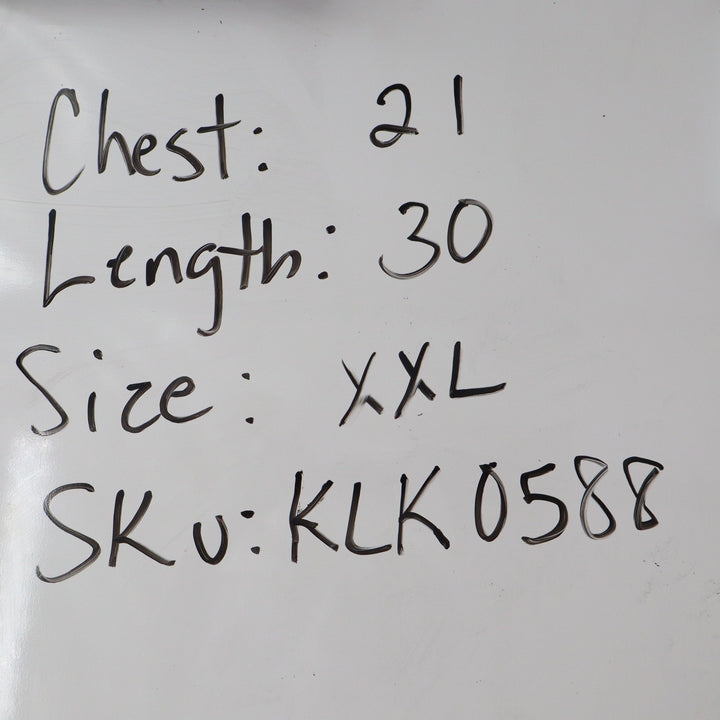 Chest: 21
Length: 30
Size: XXL
SKU: KLK0588